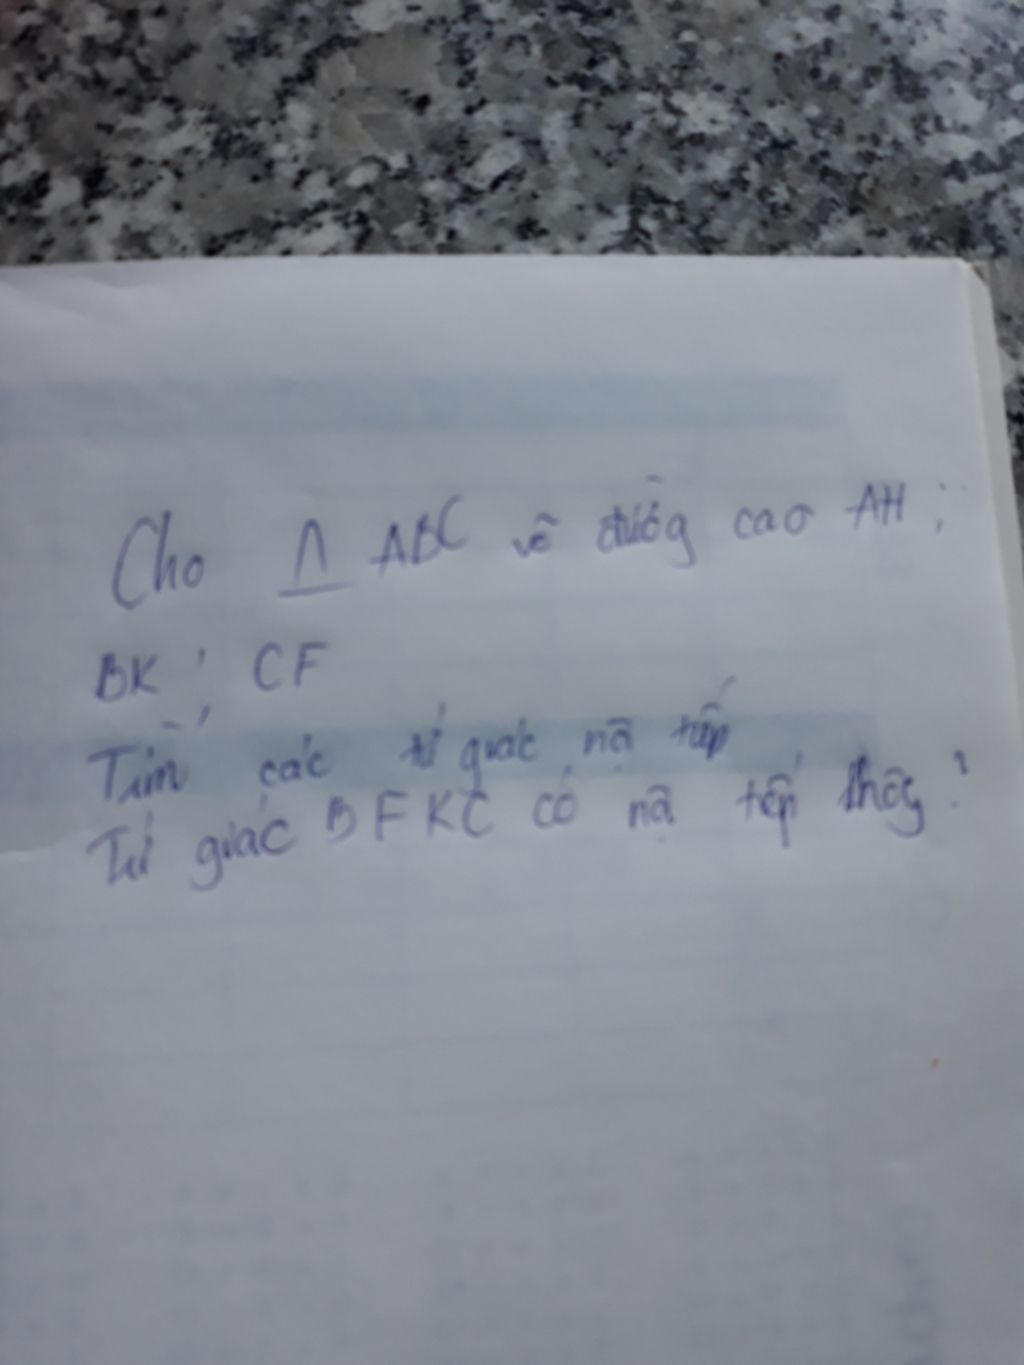 Cho Δ ABC vẽ đường cao AH;
BK; CF
Tìm các tứ giác nộ tiếp
Tứ giác BFKC có nộ tiếp khôg?